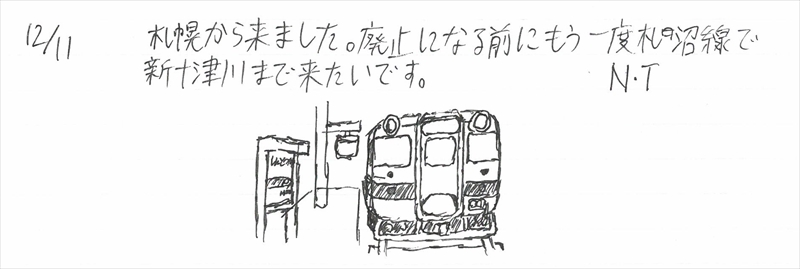 12/11 札幌から来ました。廃止になる前にもう一度札沼線で
新十津川まで来たいです。 N・T